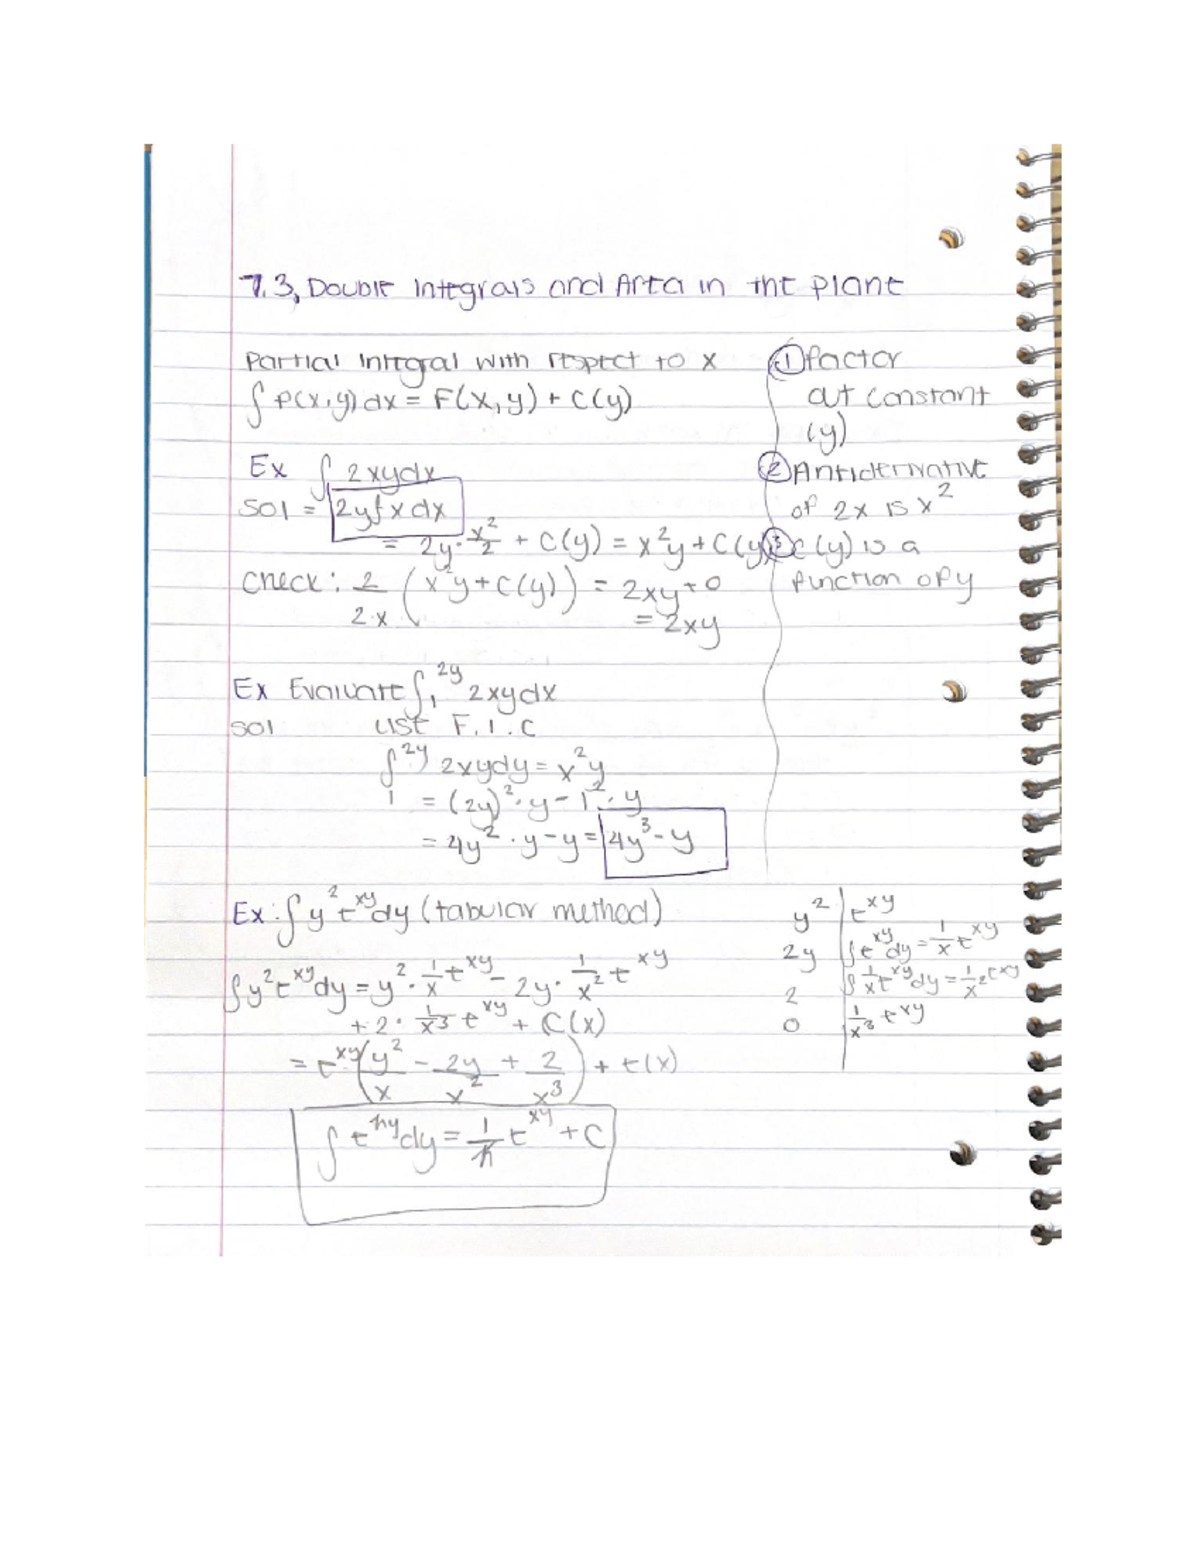 7.3, Double Integrals and Area in the Plane
Partial Integral with respect to x
∫ f(x,y) dx = F(x,y) + C(y)
Ex ∫ 2xydx
Sol = 2y∫xdx
= 2y · x²/2 + C(y) = x²y + C(y)
Check: 2/2x (x²y + C(y)) = 2xy + 0
= 2xy
① factor
out constant
(y)
② Antiderivative
of 2x is x²
③ C(y) is a
function of y
Ex Evaluate ∫₁^2y 2xydx
Sol Use F.T.C
∫₁^2y 2xydy = x²y
= (2y)² · y - 1² · y
= 4y² · y - y = 4y³ - y
Ex: ∫ y² e^xy dy (tabular method)
∫ y² e^xy dy = y² · 1/x e^xy - 2y · 1/x² e^xy
+ 2 · 1/x³ e^xy + C(x)
= e^xy (y²/x - 2y/x² + 2/x³) + c(x)
∫ e^ky dy = 1/k e^xy + C
y² | e^xy
2y | ∫e^xy dy = 1/x e^xy
2 | ∫ 1/x e^xy dy = 1/x² e^xy
0 | 1/x³ e^xy